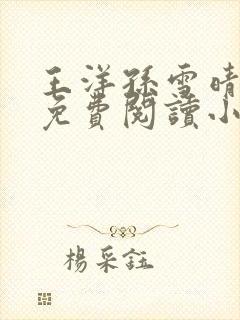 王洋孫雪晴
免費閱讀小
楊采鈺